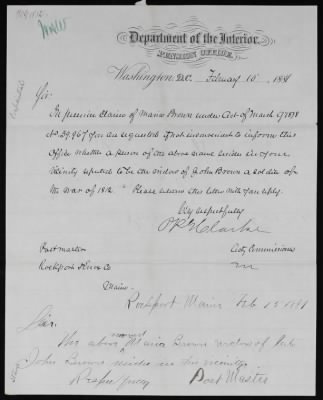 Department of the Interior,
PENSION OFFICE,
Washington D.C. February 10" 1881
Sir:
In pension claim of Maria Brown under Act of March 9 1878
No 39.967 you are requested if not inconvenient to inform this
Office whether a person of the above name resides in your
vicinity reputed to be the widow of John Brown a soldier of
the War of 1812. Please return this letter with your reply.
Very respectfully
Clarke
Postmaster
Actg Commissioner
Rockport Knox Co
Maine
Rockport Maine Feb 15 1881
Sir.
The above named Maria Brown widow of
John Brown resides in this vicinity
Respectfully
Post Master